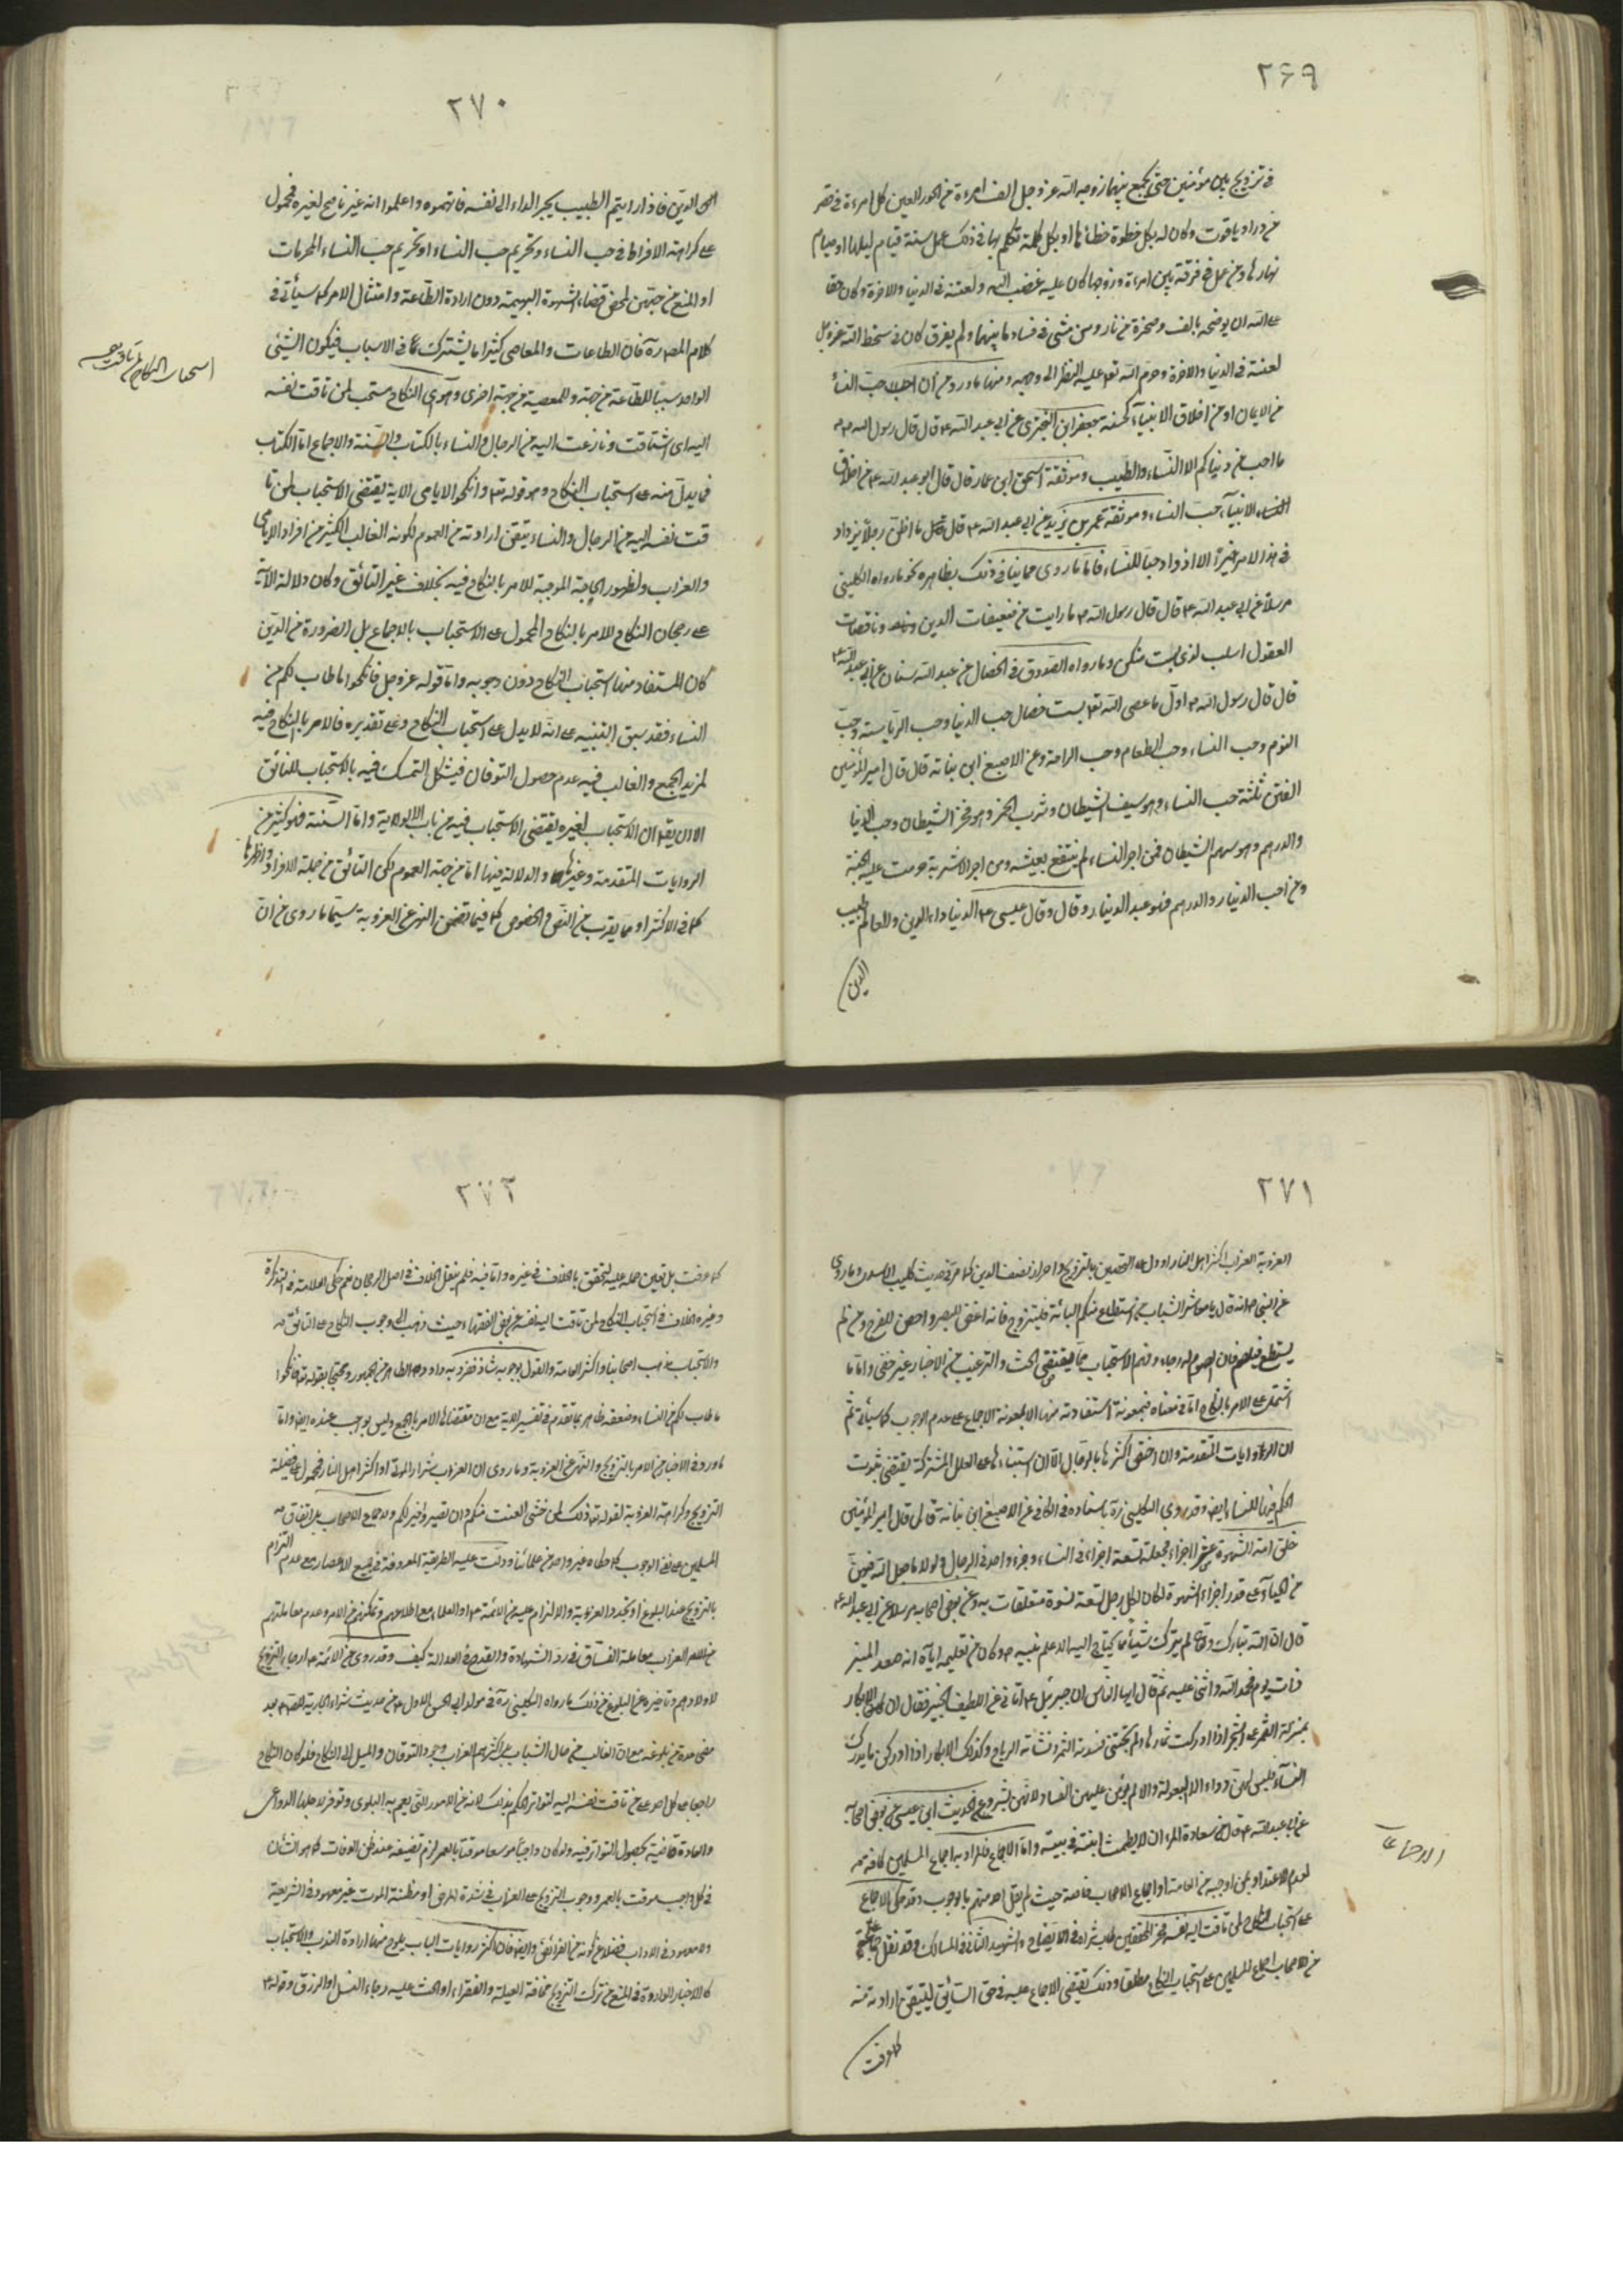 ٢۶٩
فی تزویج بین مؤمنین حتی یجمع بینهما زوجه الله عز وجل الف امرءة من الحور العین کل امرءة فی قصر
من در او یاقوت وکان له بکل خطوة خطاها او بکل کلمة تکلم بها فی ذلک عمل سنة قیام لیلها او صیام
نهارها ومن عمل فی فرقة بین امرءة وزوجها کان علیه غضب الله ولعنته فی الدنیا والاخرة وکان حقا
علی الله ان یرضخه بالف صخرة من نار ومن مشی فی فساد ما بینهما ولم یفرق کان فی سخط الله عز وجل
لعنته فی الدنیا والاخرة وحرم الله تع علیه النظر الی وجهه ومنها ما ورد من ان حب النساء
من الایمان او من اخلاق الانبیاء کحسنة جعفر ابن البختری عن ابی عبد الله ع قال قال رسول الله ص
ما احب من دنیاکم الا النساء والطیب وموثقة اسحق ابن عمار قال قال ابو عبد الله ع من اخلاق
الانبیاء حب النساء وموثقة عمر بن یزید عن ابی عبد الله ع قال ما اظن رجلا یزداد
فی هذا الامر خیرا الا ازداد حبا للنساء فاما ما روی مما ینافی ذلک بظاهره نحو ما رواه الکلینی
مرسلا عن ابی عبد الله ع قال قال رسول الله ص ما رایت من ضعیفات الدین وناقصات
العقول اسلب لذی لب منکن وما رواه الصدوق فی الخصال عن عبد الله سنان عن ابی عبد الله ع
قال قال رسول الله ص اول ما عصی الله تع بست خصال حب الدنیا وحب الریاسة وحب
النوم وحب النساء وحب الطعام وحب الراحة وعن الاصبغ ابن نباتة قال قال امیر المؤمنین
الفتن ثلثة حب النساء وهو سیف الشیطان وشرب الخمر وهو فخ الشیطان وحب الدینار
والدرهم وهو سهم الشیطان فمن احب النساء لم ینتفع بعیشه ومن احب الاشربة حرمت علیه الجنة
ومن احب الدینار والدرهم فهو عبد الدنیا وقال وقال عیسی ع الدنیا داء الدین والعالم طبیب
الدین
٢٧٠
الدین فاذا رایتم الطبیب یجر الداء الی نفسه فاتهموه واعلموا انه غیر ناصح لغیره فمحمول
علی کراهة الافراط فی حب النساء وتحریم حب النساء او تحریم حب النساء المحرمات
او المنع من حبهن لمحض قضاء الشهوة البهیمة دون ارادة الطاعة وامتثال الامر کما سیأتی فی
کلام المص ره فان الطاعات والمعاصی کثیرا ما یشترک فی الاسباب فیکون الشیئ
الواحد سببا للطاعة من جهة وللمعصیة من جهة اخری النکاح مستحب لمن تاقت نفسه
الیه ای اشتاقت ونازعت الیه من الرجال والنساء بالکتاب والسنة والاجماع اما الکتاب
فما یدل منه علی استحباب النکاح وهو قوله تع وانکحوا الایامی الایة یقتضی الاستحباب لمن تا
قت نفسه الیه من الرجال والنساء بتیقن ارادته من العموم لکونه الغالب الکثیر من افراد الایامی
والعزاب ولظهور الحاجة الموجبة للامر بالنکاح فیه بخلاف غیر التائق وکان دلالة الآیة
علی رجحان النکاح للامر بالنکاح المحمول علی الاستحباب بالاجماع بل الضرورة من الدین
کان المستفاد منها استحباب النکاح دون وجوبه واما قوله عز وجل فانکحوا ما طاب لکم من
النساء فقد سبق التنبیه علی انه لا یدل علی استحباب النکاح وعلی تقدیره فالامر بالنکاح فیه
لمرید الجمع والغالب فیه عدم حصول التوقان فیشکل التمسک فیه بالاستحباب للتائق
الا ان یقال ان الاستحباب لغیره یقتضی الاستحباب فیه من باب الاولویة واما السنة فهو کثیر من
الروایات المتقدمة وغیرها والدلالة فیها اما من جهة العموم لکن التائق من جملة الافراد واظهرها
کما فی الاکثر او ما یقرب من النص فی الخصوص کما فیما تضمن النهی عن العزوبة سیما ما روی من ان
٢٧١
العزوبة العزاب اکثر اهل النار او دل علی التحصین بالتزویج واحراز نصف الدین کما مر فی حدیث کلیب الاسدی وما روی
عن النبی ص انه قال یا معاشر الشباب من استطاع منکم الباءة فلیتزوج فانه اغض للبصر واحصن للفرج ومن لم
یستطع فلیصم فان الصوم له وجاء وفهم الاستحباب مما یقتضی الحث والترغیب من الاخبار غیر خفی واما ما
اشتمل علی الامر بالنکاح اما فی معناه فبمعونة استفادته منها الا بمعونة الاجماع علی عدم الوجوب کما سیأتی ثم
ان الروایات المتقدمة وان اختص اکثرها بالرجال الا ان استبناءها علی العلل المشترکة یقتضی ثبوت
الحکم فیها للنساء ایض وقد روی الکلینی ره باسناده فی الکافی عن الاصبغ ابن نباتة قال قال امیر المؤمنین
خلق الله الشهوة عشرة اجزاء فجعل تسعة اجزاء فی النساء وجزء واحد فی الرجال ولولا ما جعل الله فیهن
من الحیاء علی قدر اجزاء الشهوة لکان لکل رجل تسعة نسوة متعلقات به وعن بعض اصحابه مرسلا عن ابی عبد الله ع
قال ان الله تبارک وتع لم یترک شیئا مما یحتاج الیه الا علم نبیه ص وکان من تعلیمه ایاه انه صعد المنبر
ذات یوم فحمد الله واثنی علیه ثم قال ایها الناس ان جبرئیل ع اتانی عن اللطیف الخبیر فقال ان الابکار
بمنزلة الثمر علی الشجر اذا ادرکت ثمارها ولم تجتنی افسدته الشمس ونثرته الریاح وکذلک الابکار اذا ادرکن ما یدرک
النساء فلیس لهن دواء الا البعولة والا لم یؤمن علیهن الفساد لانهن بشر وعن احمد بن ابی عیسی عن بعض اصحابه
عن ابی عبد الله ع قال من سعادة المرء ان لا یطمث ابنته فی بیته واما الاجماع فالمراد به اجماع المسلمین کافة
لعدم الاعتداد بمن اوجبه من العامة او اجماع الاصحاب خاصة حیث لم یقل احد منهم بالوجوب وقد حکی الاجماع
علی استحباب النکاح لمن تاقت الیه نفسه فخر المحققین طاب ثراه فی الایضاح والشهید الثانی فی المسالک وقد نقل جماعة
من الاصحاب اجماع المسلمین علی استحباب النکاح مطلقا وذلک یقتضی الاجماع علیه فی حق التائق لتیقن ارادته منه
کما عرفت
٢٧٢
کما عرفت بل تعین حمله علیه لتحقق الخلاف فی غیره واما فیه فلم ینقل الخلاف فی اصل الرجحان نعم حکی العلامة فی التذکرة
وغیره الخلاف فی استحباب النکاح لمن تاقت الیه نفسه من بعض الفقهاء حیث ذهب الی وجوب النکاح علی التائق
والاستحباب مذهب اصحابنا واکثر العامة والقول بوجوبه شاذ تفرد به داود الظاهری من الجمهور محتجا بقوله تع فانکحوا
ما طاب لکم من النساء وضعفه ظاهر بما تقدم فی تفسیر الایة مع ان مقتضاها الامر بالجمع ولیس بواجب عنده ایض واما
ما ورد فی الاخبار من الامر بالتزویج والنهی عن العزوبة وما روی ان العزاب شرار الموتی او اکثر اهل النار فمحمول علی فضیلة
التزویج وکراهة العزوبة لقوله تع ذلک لمن خشی العنت منکم وان تصبروا خیر لکم ولاجماع الاصحاب بل اتفاق
المسلمین علی نفی الوجوب کما حکاه غیر واحد من علمائنا ودلت علیه الطریقة المعروفة فی جمیع الاعصار من عدم التزام
بالتزویج عند البلوغ او تجدد العزوبة والالتزام علیه من الائمة ع او العلماء مع اطلاعهم وتمکنهم من الامر وعدم معاملتهم
العزاب معاملة الفساق فی رد الشهادة والقدح فی العدالة کیف وقد روی عن الائمة ع ارجاء التزویج
لاولادهم وتاخیره عن البلوغ فمن ذلک ما رواه الکلینی ره فی مولد ابی الحسن الاول ع من حدیث شراء الجاریة له بعد
مضی مدة من بلوغه مع ان الغالب من حال الشباب بل اکثرهم العزاب وجود التوقان والمیل الی النکاح فلو کان النکاح
واجبا علی کل احد علی من تاقت نفسه الیه لتواتر الحکم بذلک لانه من الامور التی یعم به البلوی وتوفر لاجلها الدواعی
والعادة قاضیة بحصول التواتر فیه ولو کان واجبا موسعا موقتا بالعمر لزم تضییقه عند ظن الوفات کما هو الشان
فی کل واجب موقت بالعمر ووجوب التزویج علی العزاب فی شدة المرض او مظنة الموت غیر معهود فی الشریعة
ولا معهود فی الاداب فضلا عن کونه من الفرائض وایض فان اکثر روایات الباب یلوح منها ارادة الندب والاستحباب
کالاخبار الواردة فی المنع من ترک التزویج مخافة العیلة والفقر او الحث علیه رجاء النسل او الرزق وقوله ص